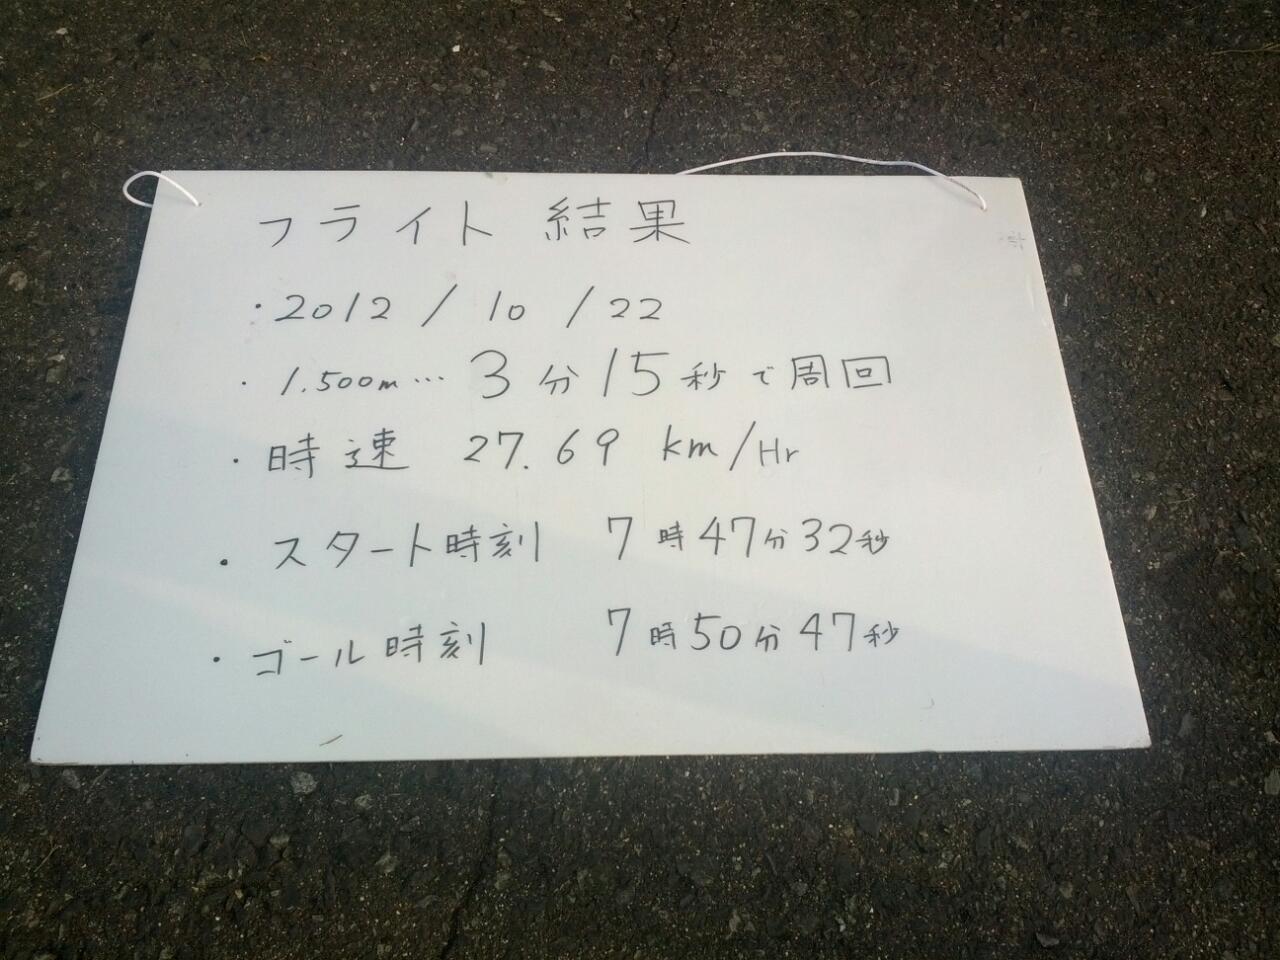 フライト 結果
・2012 / 10 / 22
・1.500m… 3分15秒で周回
・時速 27.69 km/Hr
・スタート時刻 7時47分32秒
・ゴール時刻 7時50分47秒